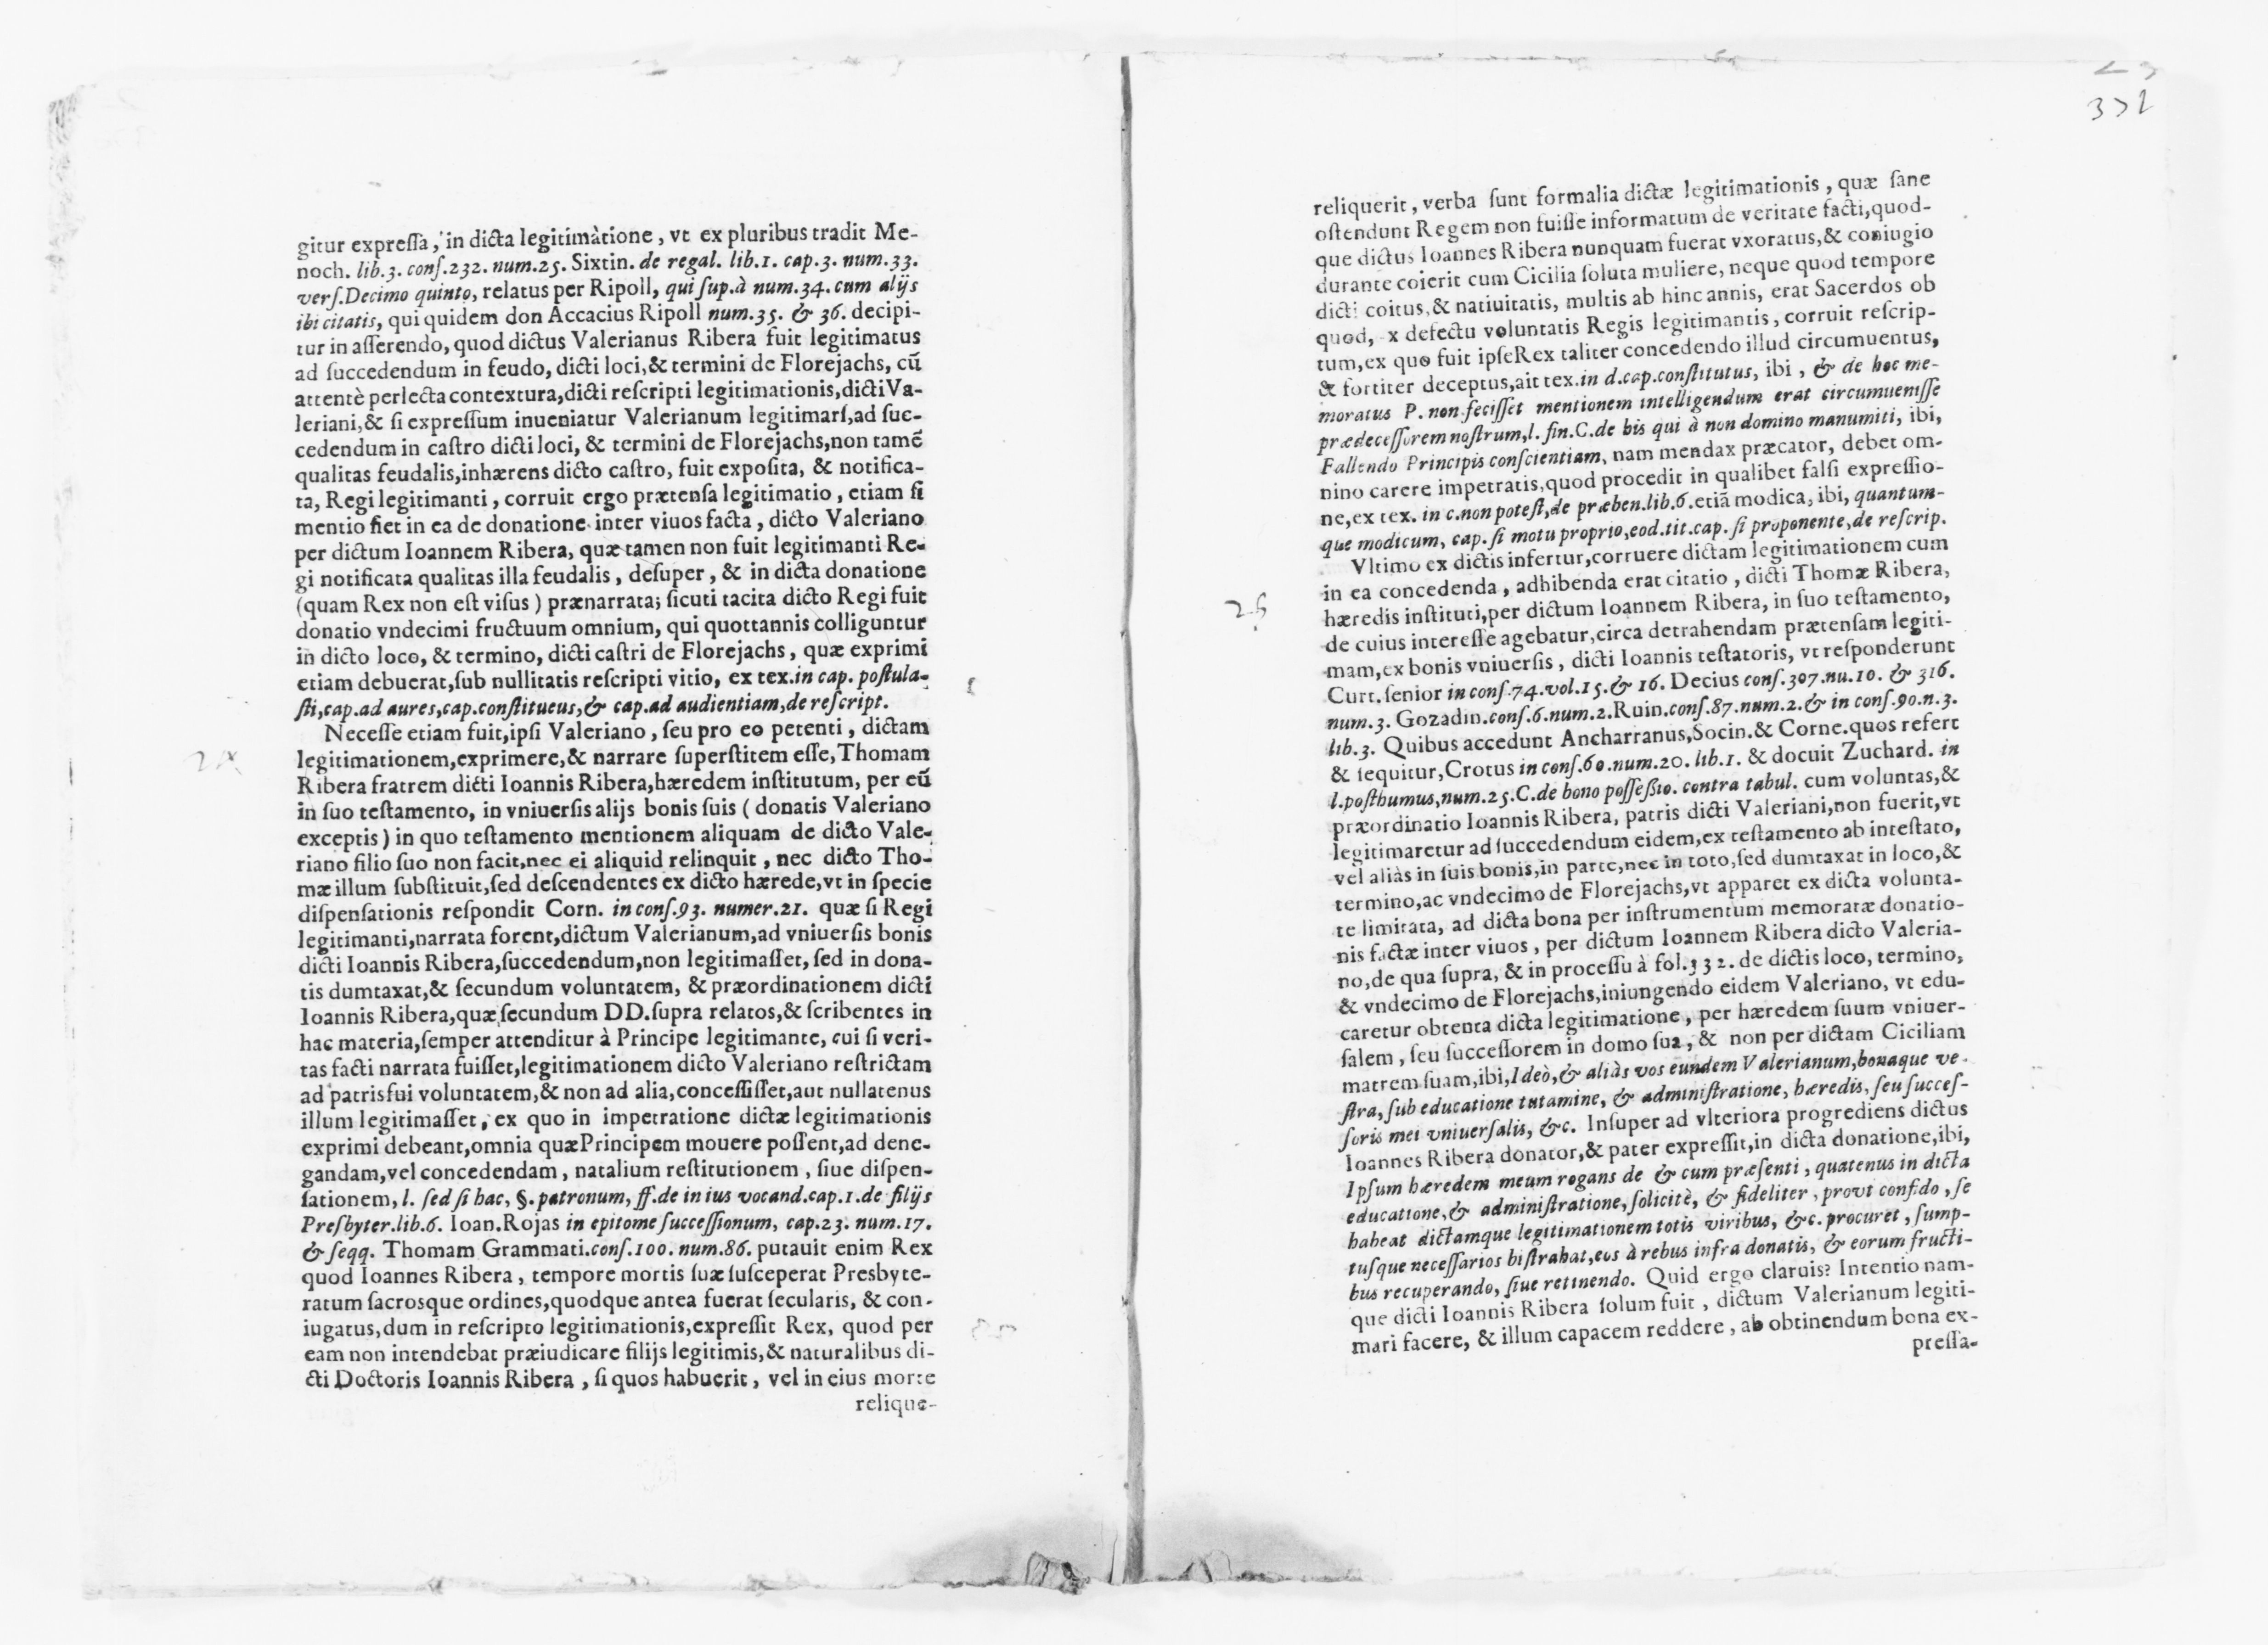 gitur expreſſa, in dicta legitimàtione, vt ex pluribus tradit Me-
noch. lib.3. conſ.232. num.25. Sixtin. de regal. lib.1. cap.3. num.33.
verſ.Decimo quinto, relatus per Ripoll, qui ſup.à num.34. cum alijs
ibi citatis, qui quidem don Accacius Ripoll num.35. & 36. decipi-
tur in aſſerendo, quod dictus Valerianus Ribera fuit legitimatus
ad ſuccedendum in feudo, dicti loci,& termini de Florejachs, cũ
attentè perlecta contextura,dicti reſcripti legitimationis,dicti Va-
leriani,& ſi expreſſum inueniatur Valerianum legitimari,ad ſuc-
cedendum in caſtro dicti loci, & termini de Florejachs,non tamẽ
qualitas feudalis,inhærens dicto caſtro, fuit expoſita, & notifica-
ta, Regi legitimanti, corruit ergo prætenſa legitimatio, etiam ſi
mentio fiet in ea de donatione inter viuos facta, dicto Valeriano
per dictum Ioannem Ribera, quæ tamen non fuit legitimanti Re-
gi notificata qualitas illa feudalis, deſuper, & in dicta donatione
(quam Rex non eſt viſus) prænarrata; ſicuti tacita dicto Regi fuit
donatio vndecimi fructuum omnium, qui quottannis colliguntur
in dicto loco, & termino, dicti caſtri de Florejachs, quæ exprimi
etiam debuerat,ſub nullitatis reſcripti vitio, ex tex.in cap. poſtula-
ſti,cap.ad aures,cap.conſtitueus,& cap.ad audientiam,de reſcript.
Neceſſe etiam fuit,ipſi Valeriano, ſeu pro eo petenti, dictam
24
legitimationem,exprimere,& narrare ſuperſtitem eſſe,Thomam
Ribera fratrem dicti Ioannis Ribera,hæredem inſtitutum, per eũ
in ſuo teſtamento, in vniuerſis alijs bonis ſuis (donatis Valeriano
exceptis) in quo teſtamento mentionem aliquam de dicto Vale-
riano filio ſuo non facit,nec ei aliquid relinquit, nec dicto Tho-
mæ illum ſubſtituit,ſed deſcendentes ex dicto hærede,vt in ſpecie
diſpenſationis reſpondit Corn. in conſ.93. numer.21. quæ ſi Regi
legitimanti,narrata forent,dictum Valerianum,ad vniuerſis bonis
dicti Ioannis Ribera,ſuccedendum,non legitimaſſet, ſed in dona-
tis dumtaxat,& ſecundum voluntatem, & præordinationem dicti
Ioannis Ribera,quæ ſecundum DD.ſupra relatos,& ſcribentes in
hac materia,ſemper attenditur à Principe legitimante, cui ſi veri-
tas facti narrata fuiſſet,legitimationem dicto Valeriano reſtrictam
ad patris ſui voluntatem,& non ad alia,conceſſiſſet,aut nullatenus
illum legitimaſſet, ex quo in impetratione dictæ legitimationis
exprimi debeant,omnia quæ Principem mouere poſſent,ad dene-
gandam,vel concedendam, natalium reſtitutionem, ſiue diſpen-
ſationem, l. ſed ſi hac, §. patronum, ff.de in ius vocand.cap.1.de filijs
Preſbyter.lib.6. Ioan.Rojas in epitome ſucceſſionum, cap.23. num.17.
& ſeqq. Thomam Grammati.conſ.100. num.86. putauit enim Rex
quod Ioannes Ribera, tempore mortis ſuæ ſuſceperat Presbyte-
ratum ſacrosque ordines,quodque antea fuerat ſecularis, & con-
iugatus,dum in reſcripto legitimationis,expreſſit Rex, quod per
eam non intendebat præiudicare filijs legitimis,& naturalibus di-
cti Doctoris Ioannis Ribera, ſi quos habuerit, vel in eius morte
relique-
332
reliquerit, verba ſunt formalia dictæ legitimationis, quæ ſane
oſtendunt Regem non fuiſſe informatum de veritate facti,quod-
que dictus Ioannes Ribera nunquam fuerat vxoratus,& coniugio
durante coierit cum Cicilia ſoluta muliere, neque quod tempore
dicti coitus,& natiuitatis, multis ab hinc annis, erat Sacerdos ob
quod, ex defectu voluntatis Regis legitimantis, corruit reſcrip-
tum,ex quo fuit ipſe Rex taliter concedendo illud circumuentus,
& fortiter deceptus,ait tex.in d.cap.conſtitutus, ibi, & de hoc me-
moratus P. non feciſſet mentionem intelligendum erat circumueniſſe
prædeceſſorem noſtrum,l. fin.C.de his qui à non domino manumiti, ibi,
Fallendo Principis conſcientiam, nam mendax præcator, debet om-
nino carere impetratis,quod procedit in qualibet falſi expreſſio-
ne,ex tex. in c.non poteſt,de præben.lib.6.etiã modica, ibi, quantum-
que modicum, cap. ſi motu proprio,eod.tit.cap. ſi proponente,de reſcrip.
Vltimo ex dictis infertur,corruere dictam legitimationem cum
25
in ea concedenda, adhibenda erat citatio, dicti Thomæ Ribera,
hæredis inſtituti,per dictum Ioannem Ribera, in ſuo teſtamento,
de cuius intereſſe agebatur,circa detrahendam prætenſam legiti-
mam,ex bonis vniuerſis, dicti Ioannis teſtatoris, vt reſponderunt
Curt. ſenior in conſ.74.vol.15.& 16. Decius conſ.307.nu.10. & 316.
num.3. Gozadin.conſ.6.num.2.Ruin.conſ.87.num.2.& in conſ.90.n.3.
lib.3. Quibus accedunt Ancharranus,Socin.& Corne.quos refert
& ſequitur,Crotus in conſ.60.num.20. lib.1. & docuit Zuchard. in
l.poſthumus,num.25.C.de bono poſſeſsio. contra tabul. cum voluntas,&
præordinatio Ioannis Ribera, patris dicti Valeriani,non fuerit,vt
legitimaretur ad ſuccedendum eidem,ex teſtamento ab inteſtato,
vel aliàs in ſuis bonis,in parte,nec in toto,ſed dumtaxat in loco,&
termino,ac vndecimo de Florejachs,vt apparet ex dicta volunta-
te limitata, ad dicta bona per inſtrumentum memoratæ donatio-
nis factæ inter viuos, per dictum Ioannem Ribera dicto Valeria-
no,de qua ſupra, & in proceſſu à fol.332. de dictis loco, termino,
& vndecimo de Florejachs,iniungendo eidem Valeriano, vt edu-
caretur obtenta dicta legitimatione, per hæredem ſuum vniuer-
ſalem, ſeu ſucceſſorem in domo ſua, & non per dictam Ciciliam
matrem ſuam,ibi,Ideò,& aliàs vos eundem Valerianum,bonaque ve-
ſtra, ſub educatione tutamine, & adminiſtratione, hæredis, ſeu ſucceſ-
ſoris mei vniuerſalis, &c. Inſuper ad vlteriora progrediens dictus
Ioannes Ribera donator,& pater expreſſit,in dicta donatione,ibi,
Ipſum hæredem meum rogans de & cum præſenti, quatenus in dicta
educatione,& adminiſtratione, ſolicitè, & fideliter, provt confido, ſe
habeat dictamque legitimationem totis viribus, &c. procuret, ſump-
tuſque neceſſarios biſtrahat,eos à rebus infra donatis, & eorum fructi-
bus recuperando, ſiue retinendo. Quid ergo claruis? Intentio nam-
que dicti Ioannis Ribera ſolum fuit, dictum Valerianum legiti-
mari facere, & illum capacem reddere, ab obtinendum bona ex-
preſſa-